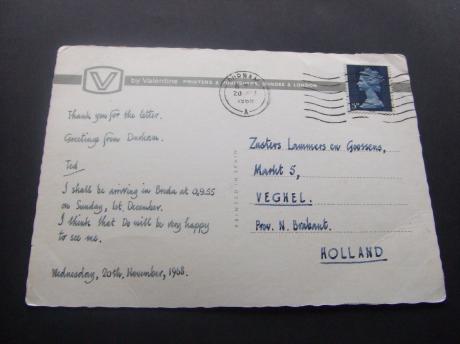 V by Valentine PRINTERS & PUBLISHERS, DUNDEE & LONDON
Thank you for the letter.
Greetings from Durham.
Ted
I shall be arriving in Breda at 09.55
on Sunday, 1st. December.
I think that Do will be very happy
to see me.
Wednesday, 20th. November, 1968.
PRINTED IN SPAIN
DURHAM
20
1968
A
Zusters Lammers en Goossens,
Markt 5,
VEGHEL.
Prov. N. Brabant.
HOLLAND